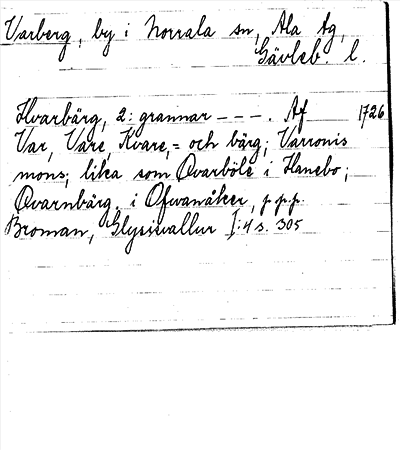 Varberg, by i Norrala sn, Ala tg,
Gävleb. l.
Hvarbärg, 2: grannar - - - . Af 1726
Var, Vare, Kvare,= och bärg; Varronis
mons; lika som Qvarböle i Hanebo;
Qvarnbärg, i Ofwanåker, p.p.p.
Broman, Glysisvallur I:4 s. 305